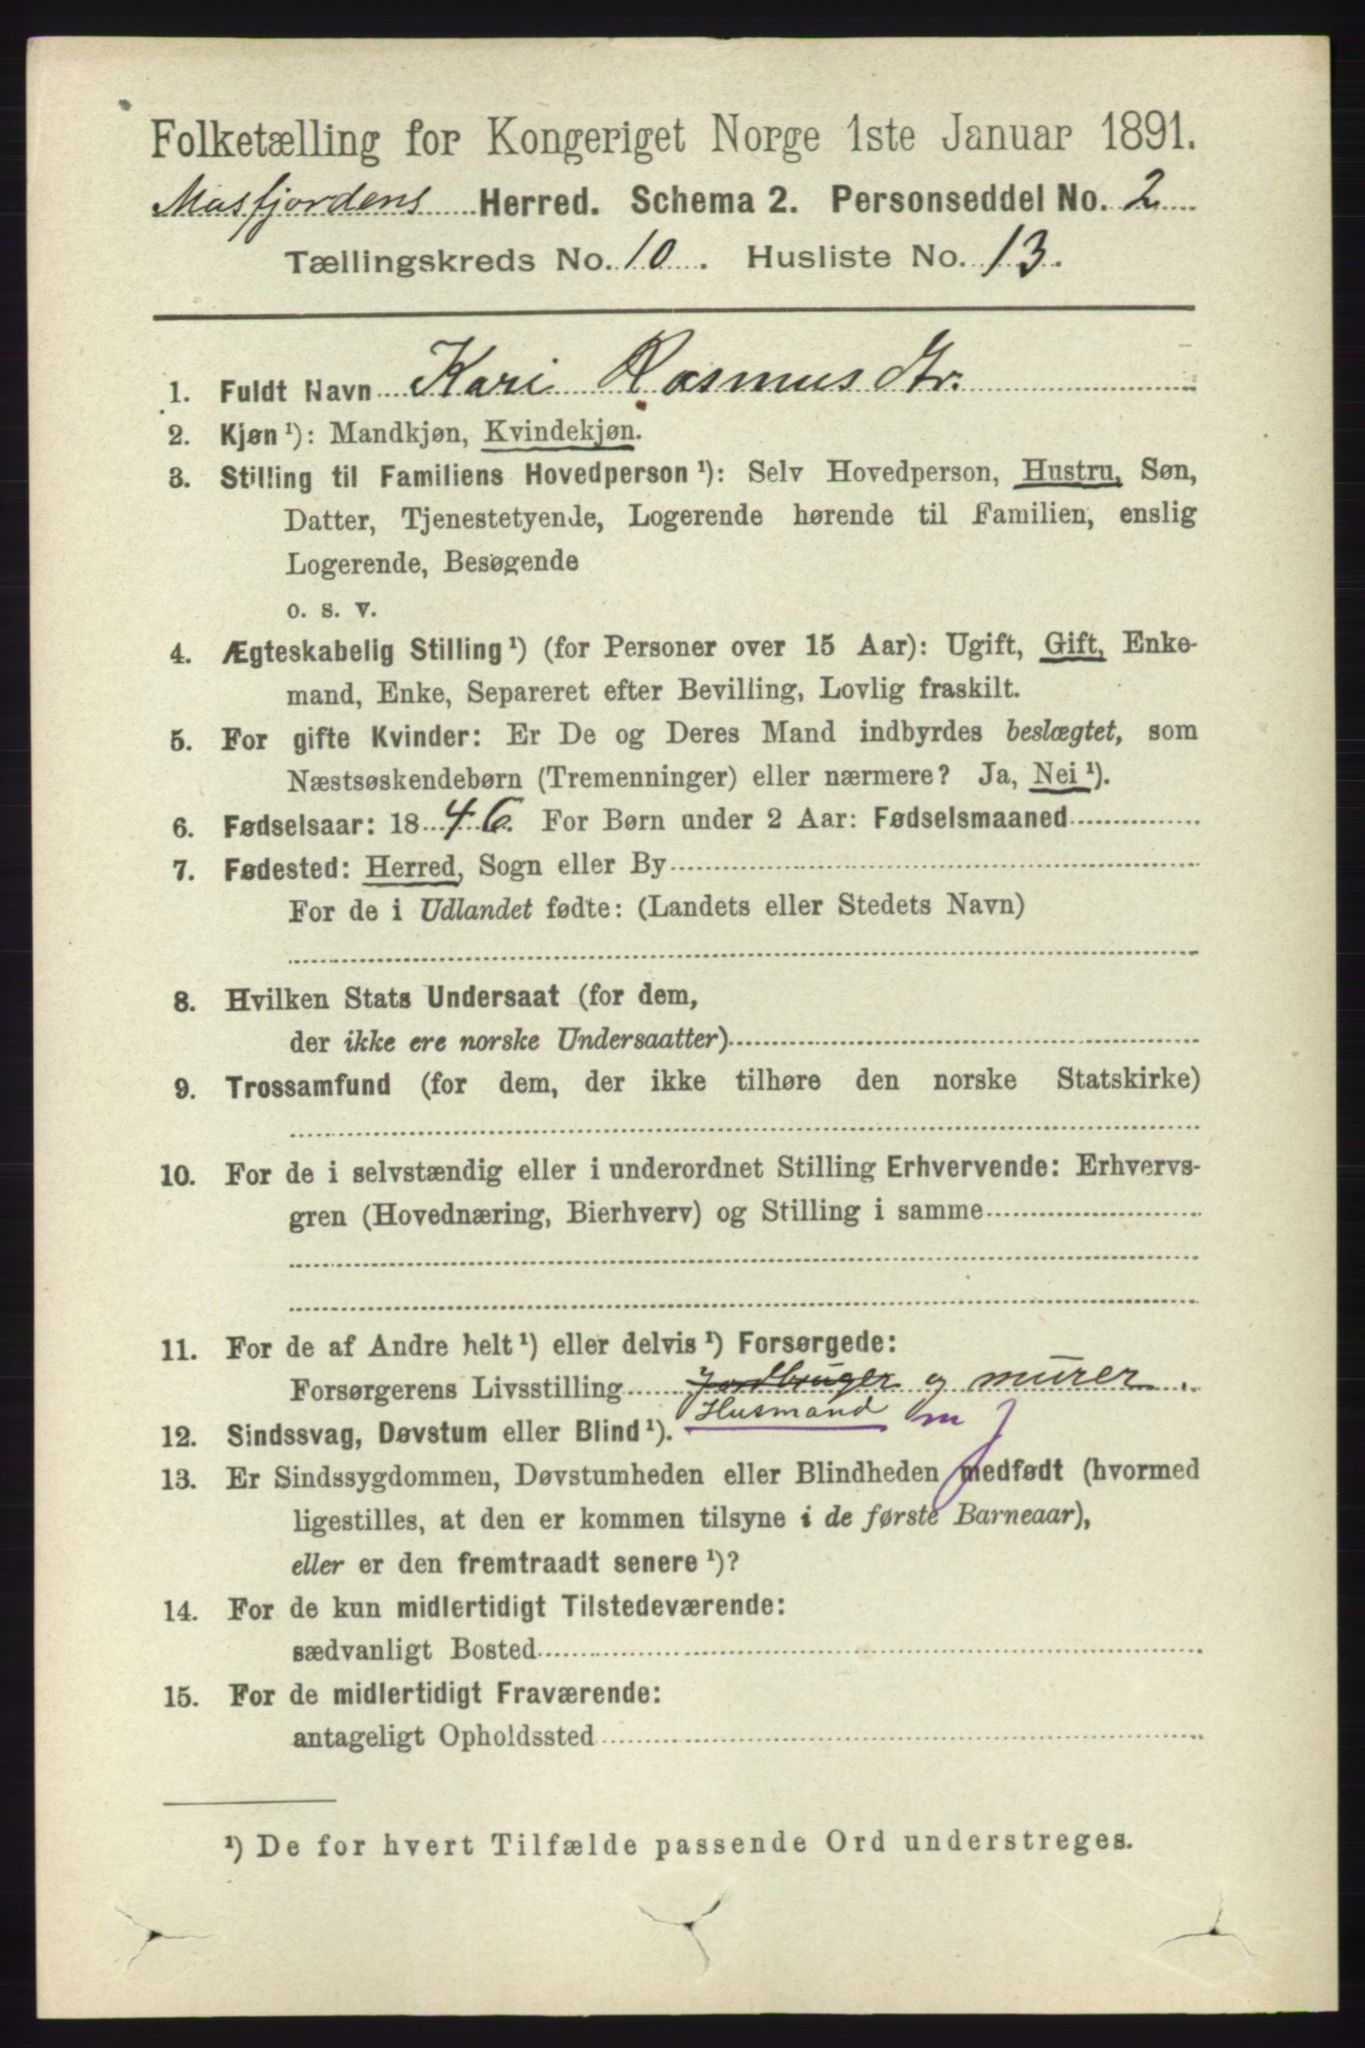 Folketælling for Kongeriget Norge 1ste Januar 1891.
Masfjordens Herred. Schema 2. Personseddel No. 2
Tællingskreds No. 10. Husliste No. 13.
1. Fuldt Navn Kari Rasmusdtr.
2. Kjøn¹): Mandkjøn, Kvindekjøn.
3. Stilling til Familiens Hovedperson¹): Selv Hovedperson, Hustru, Søn,
Datter, Tjenestetyende, Logerende hørende til Familien, enslig
Logerende, Besøgende
o. s. v.
4. Ægteskabelig Stilling¹) (for Personer over 15 Aar): Ugift, Gift, Enke-
mand, Enke, Separeret efter Bevilling, Lovlig fraskilt.
5. For gifte Kvinder: Er De og Deres Mand indbyrdes beslægtet, som
Næstsøskendebørn (Tremenninger) eller nærmere? Ja, Nei¹).
6. Fødselsaar: 1846. For Børn under 2 Aar: Fødselsmaaned
7. Fødested: Herred, Sogn eller By
For de i Udlandet fødte: (Landets eller Stedets Navn)
8. Hvilken Stats Undersaat (for dem,
der ikke ere norske Undersaatter)
9. Trossamfund (for dem, der ikke tilhøre den norske Statskirke)
10. For de i selvstændig eller i underordnet Stilling Erhvervende: Erhvervs-
gren (Hovednæring, Bierhverv) og Stilling i samme
11. For de af Andre helt¹) eller delvis¹) Forsørgede:
Forsørgerens Livsstilling Jordbruger og murer.
Husmand m J
12. Sindssvag, Døvstum eller Blind¹).
13. Er Sindssygdommen, Døvstumheden eller Blindheden medfødt (hvormed
ligestilles, at den er kommen tilsyne i de første Barneaar),
eller er den fremtraadt senere¹)?
14. For de kun midlertidigt Tilstedeværende:
sædvanligt Bosted
15. For de midlertidigt Fraværende:
antageligt Opholdssted
¹) De for hvert Tilfælde passende Ord understreges.